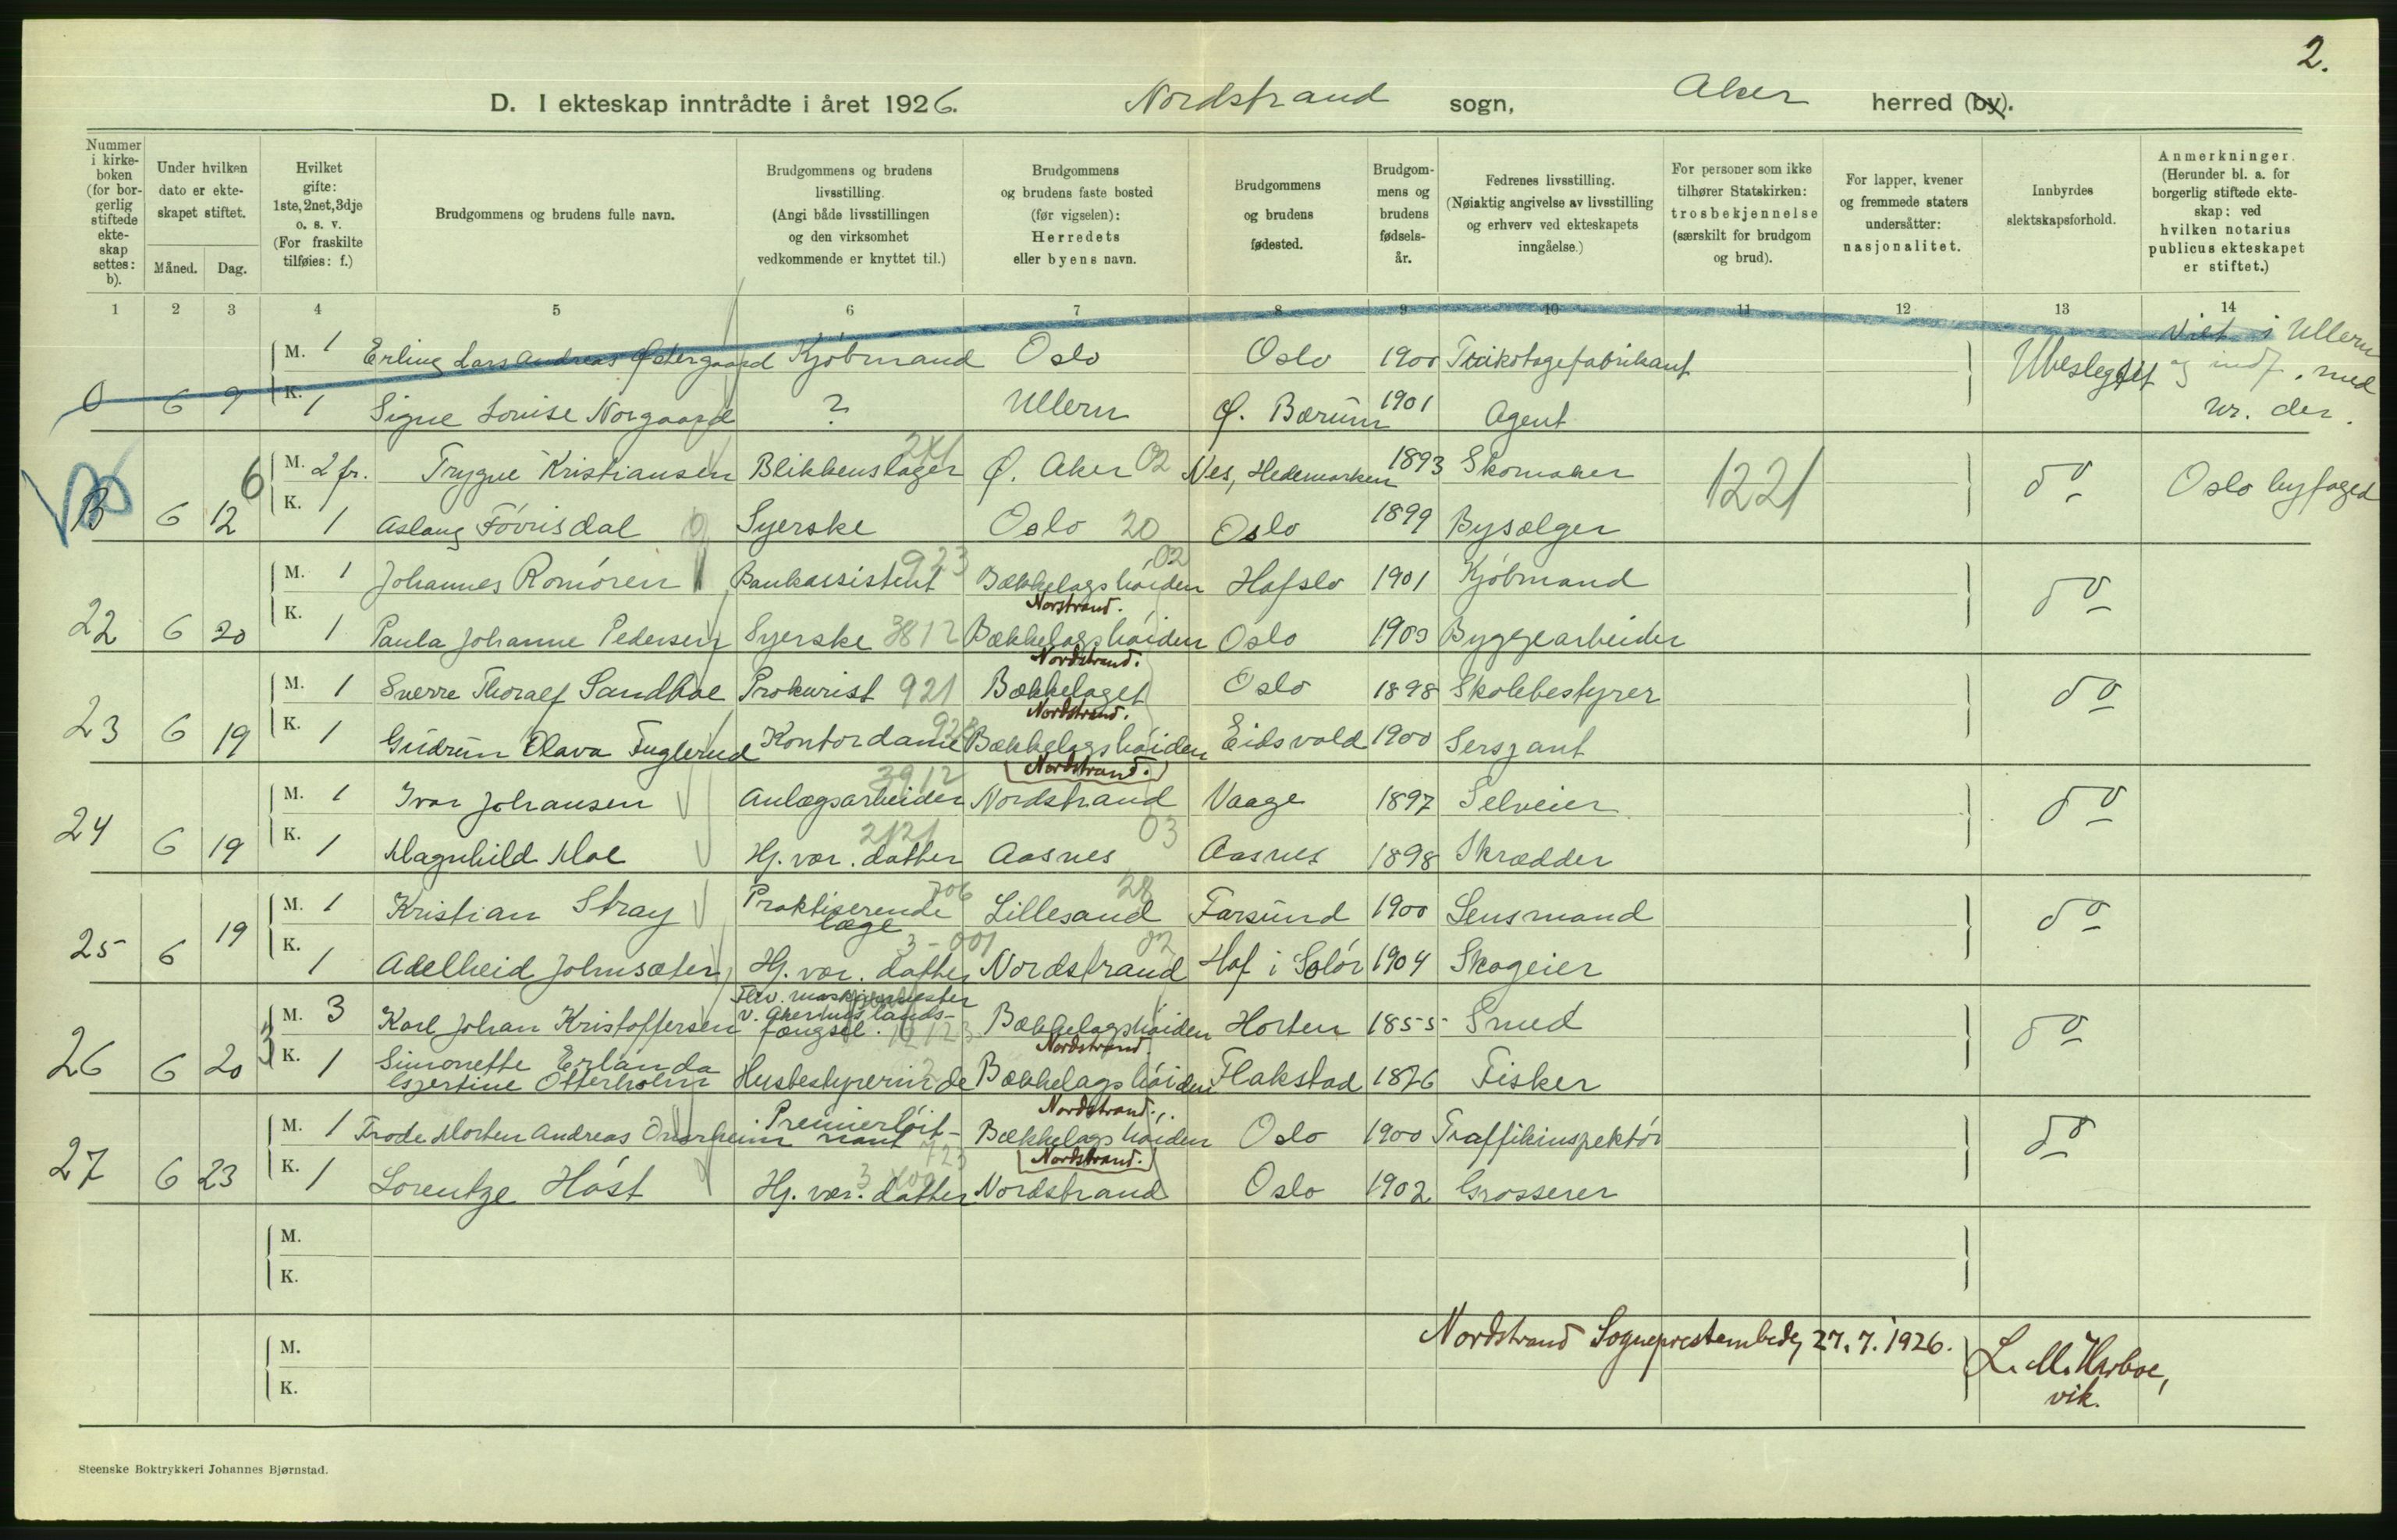 2.
D. I ekteskap inntrådte i året 1926. Nordstrand sogn, Aker herred (by).
Nummer i kirke-boken (for bor-gerlig stiftede ekte-skap settes: b).
Under hvilken dato er ekte-skapet stiftet.
Måned. Dag.
Hvilket gifte: 1ste, 2net, 3dje o. s. v. (For fraskilte tilføies: f.)
Brudgommens og brudens fulle navn.
Brudgommens og brudens livsstilling. (Angi både livsstillingen og den virksomhet vedkommende er knyttet til.)
Brudgommens og brudens faste bosted (før vigselen): Herredets eller byens navn.
Brudgommens og brudens fødested.
Brudgom-mens og brudens fødsels-år.
Fedrenes livsstilling. (Nøiaktig angivelse av livsstilling og erhverv ved ekteskapets inngåelse.)
For personer som ikke tilhører Statskirken: trosbekjennelse (særskilt for brudgom og brud).
For lapper, kvener og fremmede staters undersåtter: nasjonalitet.
Innbyrdes slektskapsforhold.
Anmerkninger. (Herunder bl. a. for borgerlig stiftede ekte-skap: ved hvilken notarius publicus ekteskapet er stiftet.)
1 2 3 4 5 6 7 8 9 10 11 12 13 14
M. 1 Erling Lars Andreas Østergaard Kjöbmand Oslo Oslo 1900 Trikotagefabrikant Ubeslegtet Viet i Ullern
og indf. med
0 6 9 K. 1 Signe Louise Norgaard ? Ullern Ø. Bærum 1901 Agent nr. der.
6 M. 2 fr. Trygve Kristiansen Blikkenslager Ø. Aker 02 Nes, Hedemarken 1893 Skomaker 1221 do Oslo byfoged
B 6 12 K. 1 Aslaug Fövrisdal Syerske Oslo 20 Oslo 1899 Bysælger
M. 1 Johannes Romören Bankassistent 923 Bækkelagshöiden 02 Hafslo 1901 Kjöbmand do
Norstrand.
22 6 20 K. 1 Paula Johanne Pedersen Syerske 3812 Bækkelagshöiden Oslo 1903 Byggearbeider
Nordstrand.
M. 1 Sverre Thoralf Sandboe Prokurist 921 Bækkelaget Oslo 1898 Skolebestyrer do
Nordstrand.
23 6 19 K. 1 Gudrun Olava Fuglerud Kontordame Bækkelagshöiden Eidsvold 1900 Sersjant
Nordstrand.
M. 1 Ivar Johansen Anlægsarbeider 3912 Nordstrand Vaage 1897 Selveier do
24 6 19 K. 1 Magnhild Moe Hj. vær. datter 2121 Aasnes 03 Aasnes 1898 Skrædder
M. 1 Kristian Stray Praktiserende læge 706 Lillesand 28 Farsund 1900 Lensmand do
25 6 19 K. 1 Adelheid Johnsæter Hj. vær. datter 3-001 Nordstrand 02 Hof i Solör 1904 Skogeier
M. 3 Karl Johan Kristoffersen Flrv. maskinmester
v. Akershus lands-
fængsel. Bækkelagshöiden Horten 1855 Smed do
Nordstrand.
26 6 20 K. 1 Simonette Erlanda
Gjertine Otterholm Husbestyrerinde Bækkelagshöiden Flakstad 1876 Fisker
Nordstrand.
M. 1 Frode Morten Andreas Onarheim Premierlöit-
nant 723 Bækkelagshöiden Oslo 1900 Traffikinspektör do
Nordstrand.
27 6 23 K. 1 Lorentze Höst Hj. vær. datter Nordstrand Oslo 1902 Grosserer
M.
K.
M.
K.
Nordstrand Sogneprestembede, 27.7.1926. L. M. Harboe,
vik.
Steenske Boktrykkeri Johannes Bjørnstad.